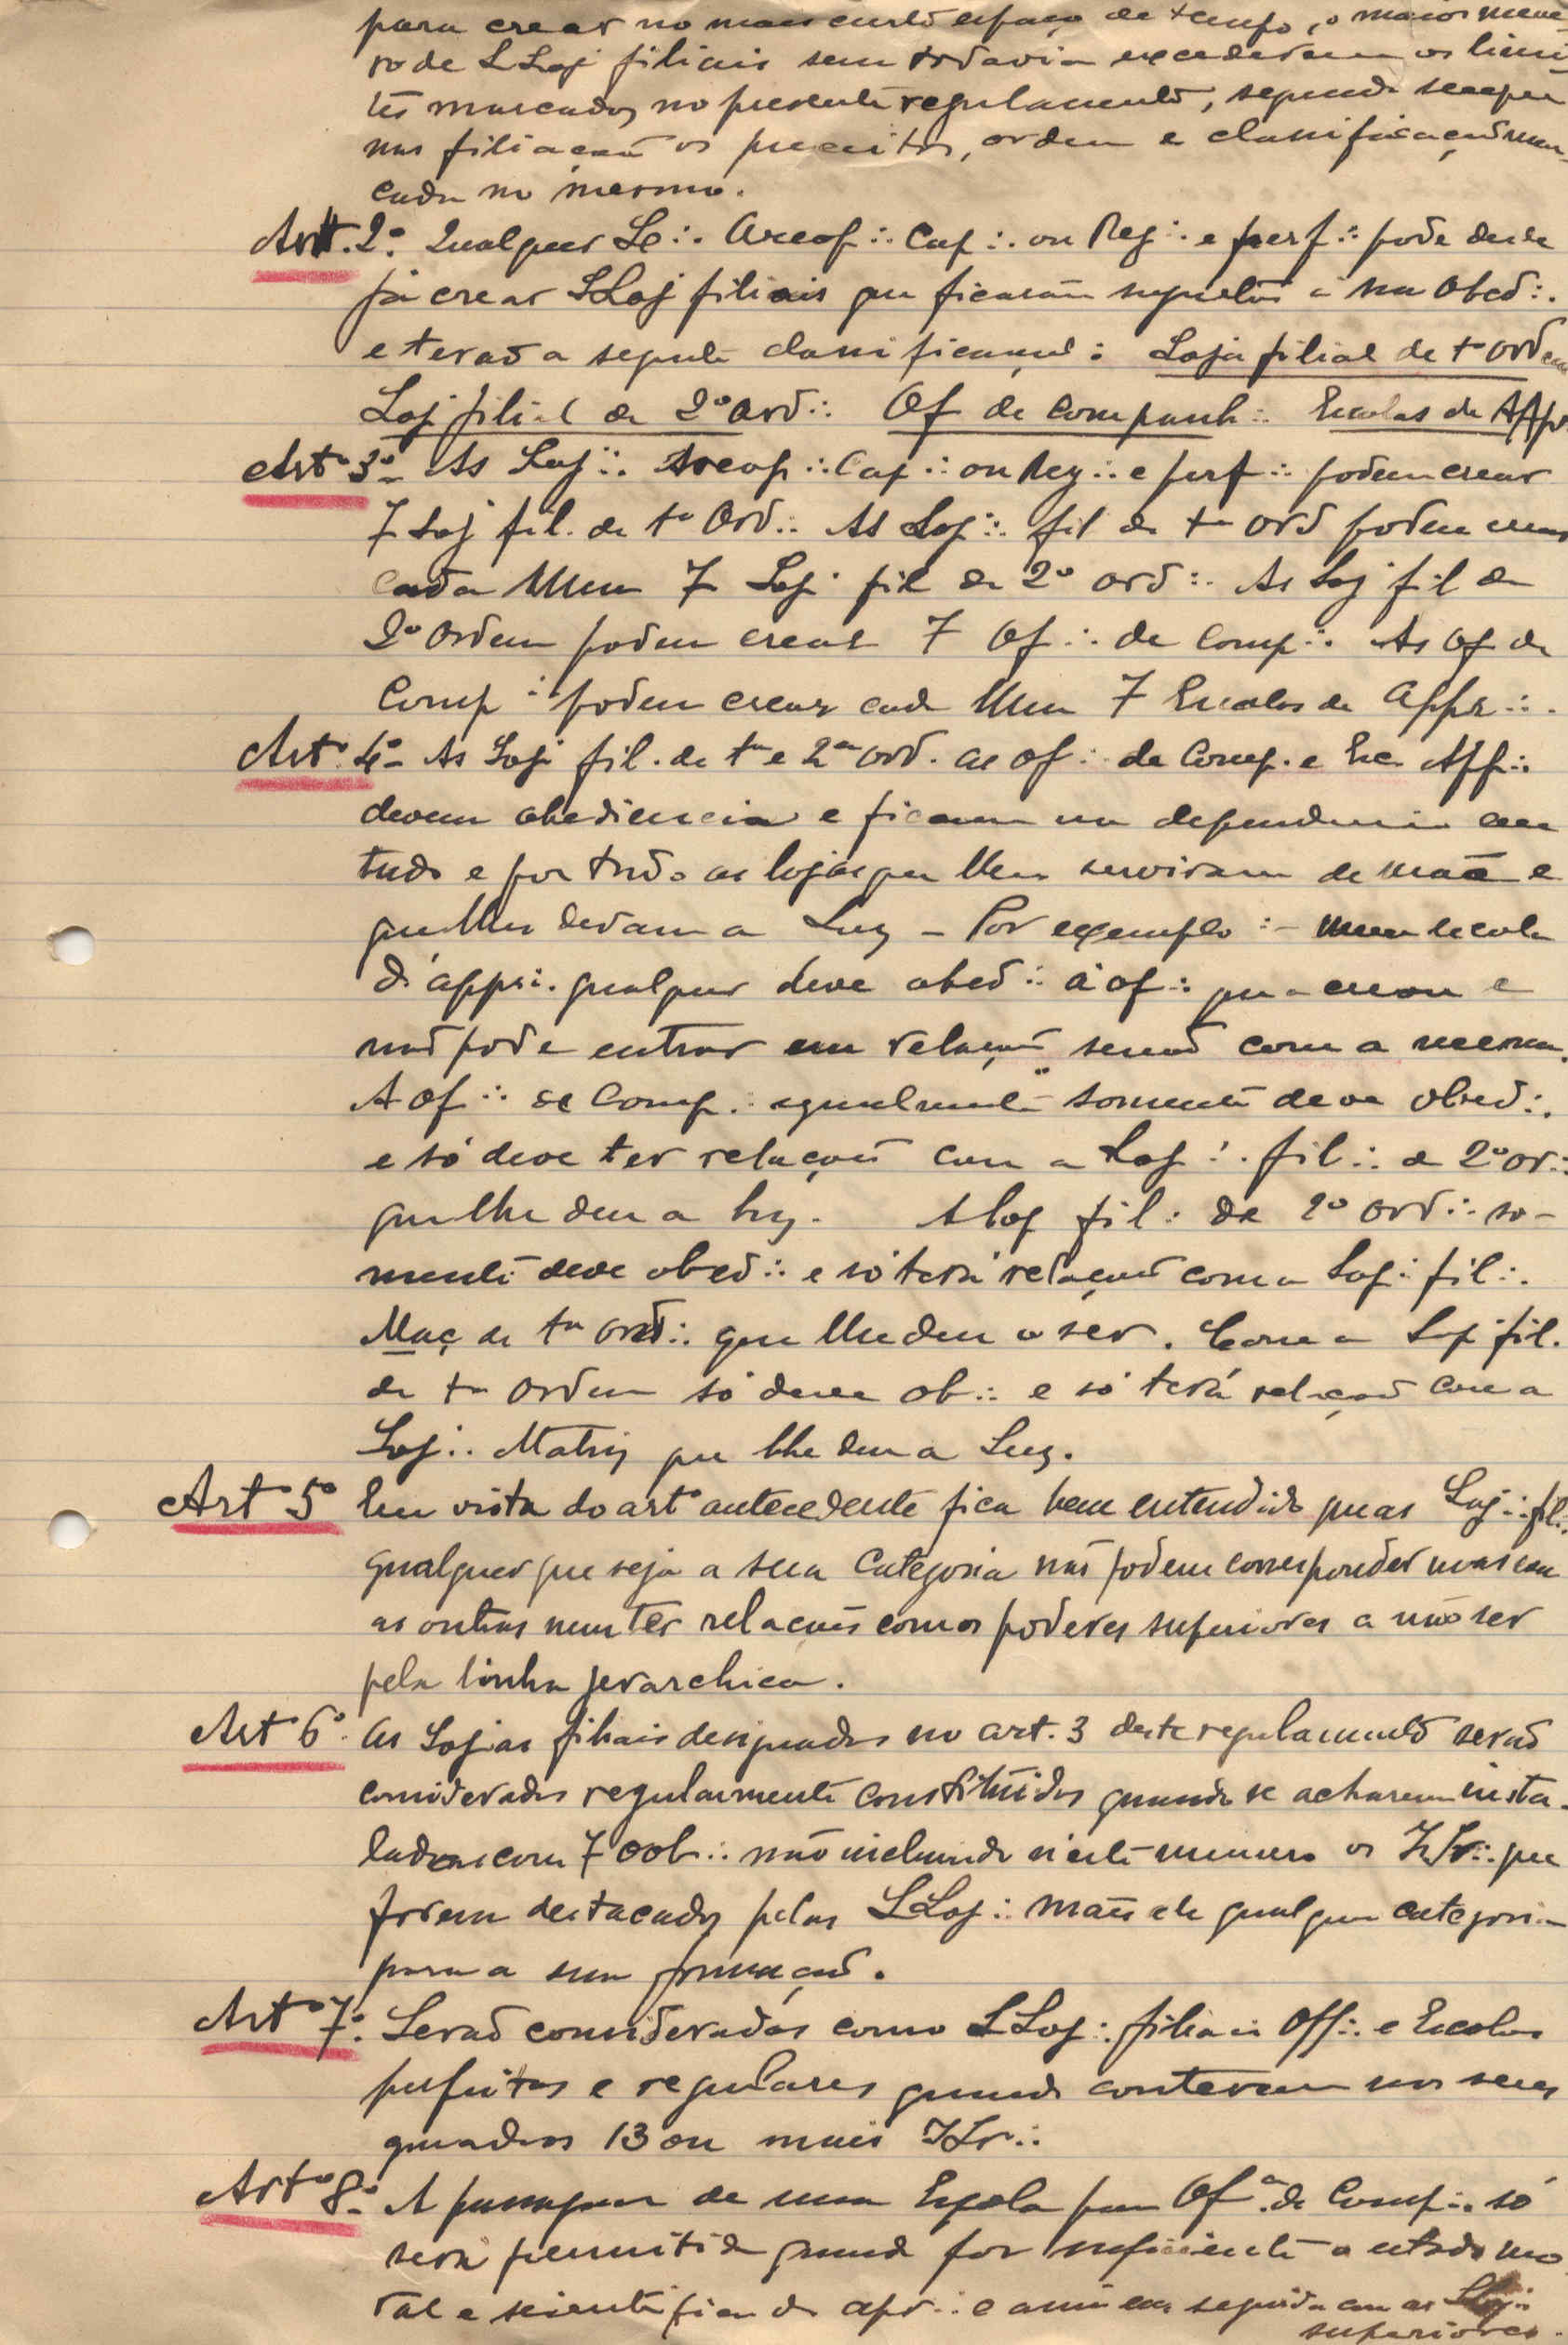 para crear no mais curto espaço de tempo, o maior nume-
ro de LLoj filiais sem todavia excederem os limi
tes marcados no presente regulamento, seguindo sempre
nas filiações os preceitos, ordem e classificação mar-
cada no mesmo.
Art. 2º. Qualquer Areop∴ Cap∴ ou Reg∴ e perf∴ pode desde
já crear LLoj filiais que ficaram sugeitas á sua Obed∴
e terão a seguinte classificação: Loja filial de 1ª Ordem
Loj filial de 2ª Ord∴ Of de Companh∴ Escolas de App
Artº 3º- As Loj∴ Areop∴ Cap∴ ou Reg∴ e perf∴ podem crear
7 Loj fil. de 1ª Ord∴ As Loj∴ fil de 1ª Ord podem crear
cada uma 7 Loj fil de 2ª ord∴ As Loj fil de
2ª Ordem podem crear 7 Of∴ de Comp∴ As Of de
Comp∴ podem crear cada uma 7 Escolas de Appr∴
Artº 4º- As Loj fil. de 1ª e 2ª Ord. as Of∴ de Comp. e Esc App∴
devem obediencia e ficam na dependencia em
tudo e por tudo as lojas que lhes serviram de mãe e
que lhes deram a Luz - Por exemplo:- uma escola
d'appr∴ qualquer deve obed∴ á of∴ que a creou e
não pode entrar em relação senão com a mesma.
A of∴ de Comp∴ egualmente somente deve obed∴
e só deve ter relações com a Loj∴ fil∴ de 2ª or∴
que lhe deu a luz. A loj fil∴ de 2ª Ord∴ so-
mente deve obed∴ e só terá relação com a Loj∴ fil∴
Maç de 1ª Ord∴ que lhe deu o ser. E a Loj fil.
de 1ª Ordem só deve ob∴ e só terá relação com a
Loj∴ Matriz que lhe deu a Luz.
Artº 5º Em vista do artº antecedente fica bem entendido que as Loj∴ fil∴
qualquer que seja a sua categoria não podem corresponder umas com
as outras nem ter relações com os poderes superiores a não ser
pela linha jerarchica.
Artº 6º. As Lojas filiais designadas no art. 3 deste regulamento serão
consideradas regularmente constituidas quando se acharem insta-
ladas com 7 oob∴ não incluindo n'este numero os IIr∴ que
forem destacados pelas LLoj∴ mães de qualquer categoria
para a sua formação.
Artº 7º. Serão consideradas como LLoj∴ filiais Off∴ e Escolas
perfeitas e regulares quando conterem nos seus
quadros 13 ou mais IIr∴
Artº 8º- A passagem de uma Escola para Ofª. de Comp∴ só
será permitida quando for suficiente o estado mo
ral e scientifico do apr∴ e assim em seguida com as LLoj∴
superiores.